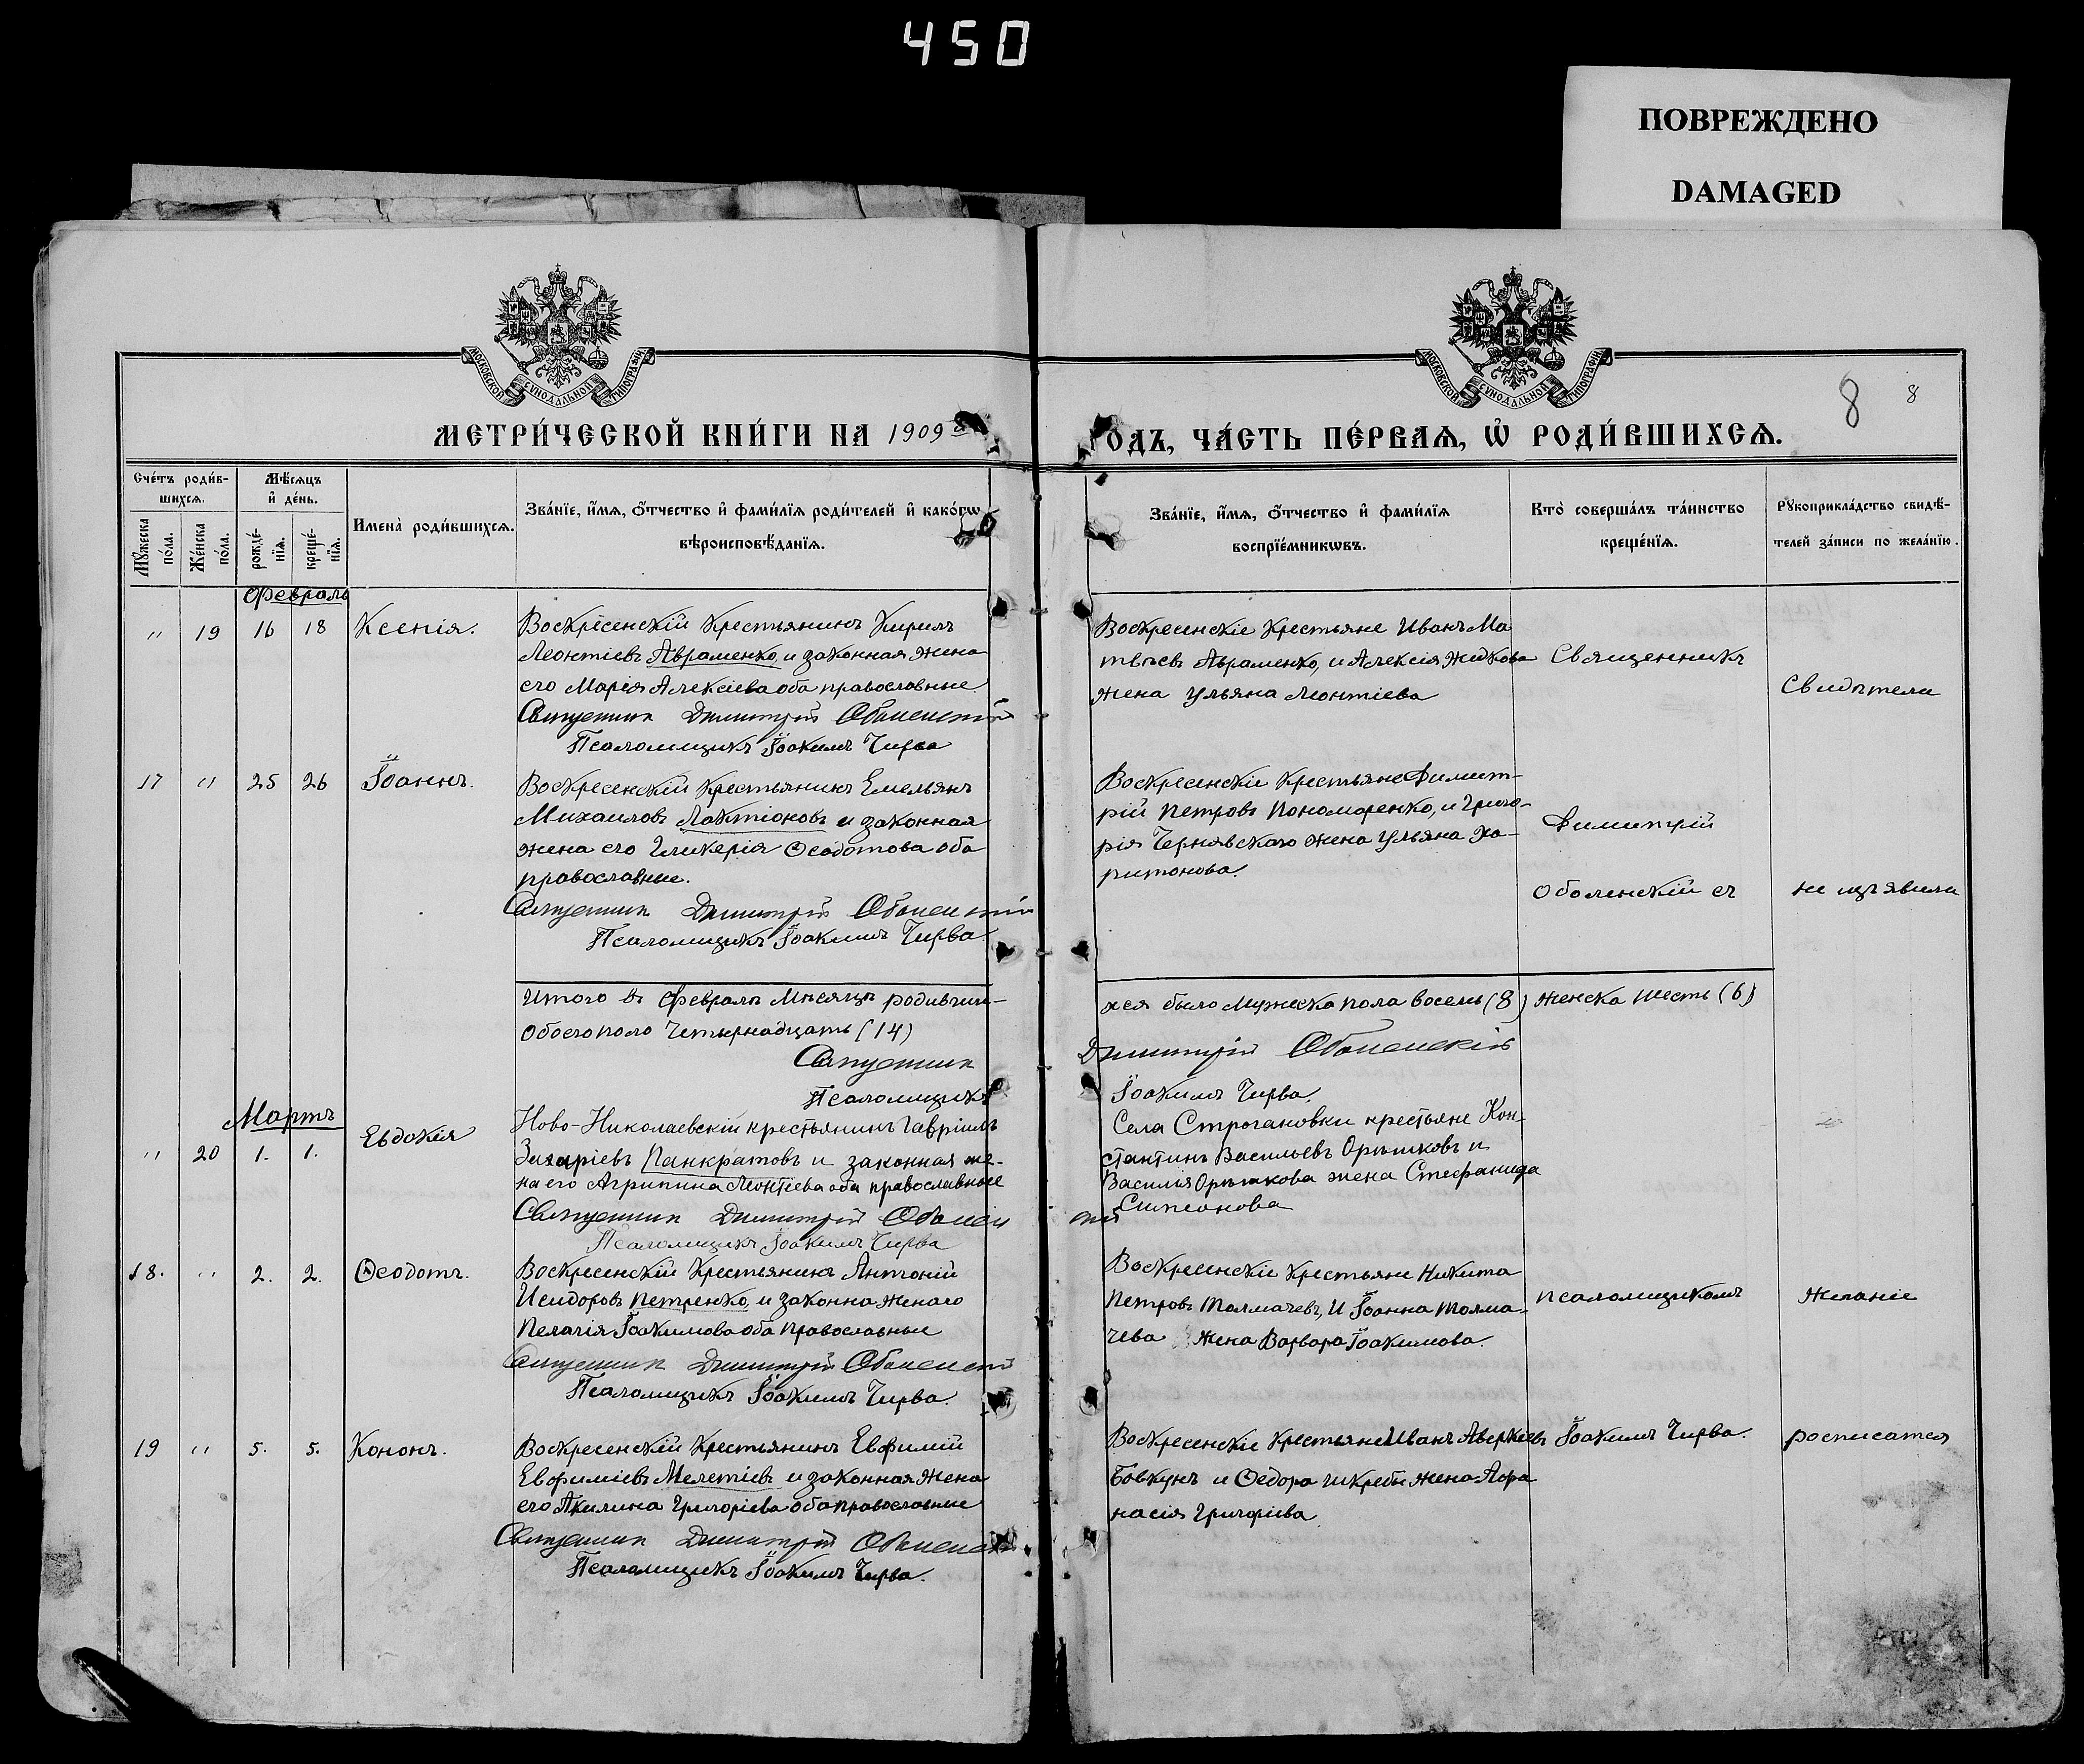 450
ПОВРЕЖДЕНО
DAMAGED
МОСКОВСКОЙ СѴНОДАЛЬНОЙ ТИПОГРАФІИ
МОСКОВСКОЙ СѴНОДАЛЬНОЙ ТИПОГРАФІИ
8 8
МЕТРИ́ЧЕСКОЙ КНИ́ГИ НА 1909
ОДЪ, ЧА́СТЬ ПЕ́РВАѦ, Ѡ҆ РОДИ́ВШИХСѦ.
Сче́тъ роди́в-
шихсѧ.
Мѣ́сѧцъ
и҆ де́нь.
Мꙋ́жеска
по́ла.
Же́нска
по́ла.
рожде́-
нїѧ.
креще́-
нїѧ.
Имена̀ роди́вшихсѧ.
Зва́нїе, и҆́мѧ, ѻ҆́тчество и҆ фами́лїѧ роди́телей и҆ како́гѡ
вѣроисповѣ́данїѧ.
Зва́нїе, и҆́мѧ, ѻ҆́тчество и҆ фами́лїѧ
воспрїе́мникѡвъ.
Кто̀ соверша́лъ та́инство
креще́нїѧ.
Рꙋкоприкла́дство свидѣ́-
телей за́писи по жела́нїю.
Февраль
" 19 16 18 Ксенія.
Воскресенскій крестьянинъ Кирилъ
Леонтіевъ Авраменко, и законная жена
его Марія Алексіева оба православные.
Священникъ Димитрій Оболенскій
Псаломщикъ Іоакимъ Чирва
Воскресенскіе крестьяне Иванъ Ма
твѣевъ Авраменко, и Алексія Жидкова
жена Ульяна Леонтіева
Священникъ
Свидѣтели
17 " 25 26 Іоаннъ.
Воскресенскій крестьянинъ Емельянъ
Михаиловъ Лактіоновъ и законная
жена его Гликерія Ѳеодотова оба
православные.
Священникъ Димитрій Оболенскій
Псаломщикъ Іоакимъ Чирва
Воскресенскіе крестьяне Димит-
рій Петровъ Пономаренко, и Григо-
рія Чернявскаго жена Ульяна Ха-
ритонова.
Димитрій
Оболенскій съ
не изъявили
Итого въ Февралѣ мѣсяцѣ родивши-
хся было мужеска пола восемь (8) женска шесть (6)
обоего поло четырнадцать (14)
Священникъ
Димитрій Оболенскій
Псаломщикъ
Іоакимъ Чирва.
Мартъ
" 20 1. 1. Евдокія
Ново-Николаевскій крестьянинъ Гавріилъ
Захаріевъ Панкратовъ и законная же-
на его Агрипина Леонтіева оба православные
Священникъ Димитрій Оболенскій
Псаломщикъ Іоакимъ Чирва
Села Строгановки крестьяне Кон-
стантинъ Васильевъ Орѣшковъ и
Василія Орѣшкова жена Стефанида
Симеонова
18. " 2. 2. Ѳеодотъ.
Воскресенскій крестьянинъ Антоній
Исидоровъ Петренко, и законна жена его
Пелагія Іоакимова оба православные
Священникъ Димитрій Оболенскій
Псаломщикъ Іоакимъ Чирва.
Воскресенскіе крестьяне Никита
Петровъ Толмачевъ, и Іоанна Толма-
чева жена Варвара Іоакимова.
псаломщикомъ
желаніе
19 " 5. 5. Кононъ.
Воскресенскій крестьянинъ Евфимій
Евфиміевъ Мелетіевъ и законная жена
его Акилина Григоріева оба православные
Священникъ Димитрій Оболенскій
Псаломщикъ Іоакимъ Чирва.
Воскресенскіе крестьяне Иванъ Аверкіевъ
Бовкунъ и Ѳедора Шкребы жена Афа
насія Григоріева
Іоакимъ Чирва.
росписатся